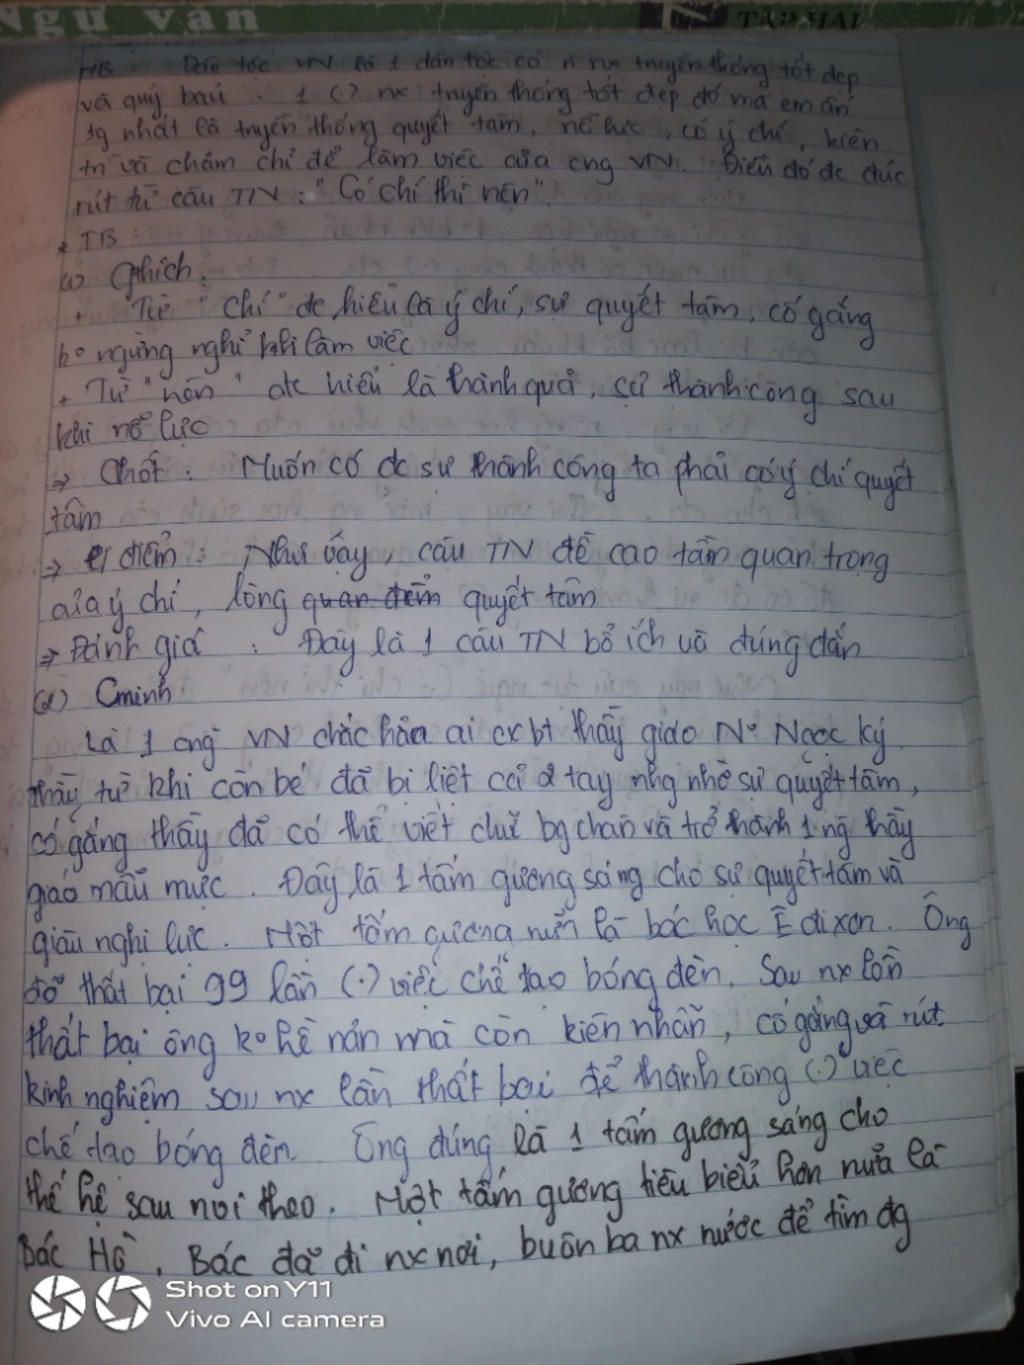 Ngữ văn
TẬP HAI
MB : Dân tộc VN là 1 dân tộc có n truyền thống tốt đẹp
và quý báu . 1 (.) nx truyền thống tốt đẹp đó mà em ấn
tg nhất là truyền thống quyết tâm, nỗ lực, có ý chí, kiên
trì và chăm chỉ để làm việc của cng VN. Điều đó đc đúc
rút từ câu TN : "Có chí thì nên".
* TB :
(1) Gthích.
+ Từ "chí" đc hiểu là ý chí, sự quyết tâm, cố gắng
ko ngừng nghỉ khi làm việc
+ Từ "nên" đc hiểu là thành quả, sự thành công sau
khi nỗ lực
=> Chốt : Muốn có đc sự thành công ta phải có ý chí quyết
tâm
=> điểm : Như vậy, câu TN đề cao tầm quan trọng
của ý chí, lòng quan điểm quyết tâm
=> Đánh giá : Đây là 1 câu TN bổ ích và đúng đắn
(2) Cminh
Là 1 cng VN chắc hẳn ai cx bt thầy giáo No Ngọc Ký.
thầy từ khi còn bé đã bị liệt cả 2 tay nhg nhờ sự quyết tâm,
cố gắng thầy đã có thể viết chữ bg chân và trở thành 1 ng thầy
giáo mẫu mực. Đây là 1 tấm gương sáng cho sự quyết tâm và
giàu nghị lực. Một tấm gương nữa là bác học Ê đi xơn. Ông
đã thất bại 99 lần (.) việc chế tạo bóng đèn. Sau nx lần
thất bại ông ko hề nản mà còn kiên nhẫn, cố gắng và rút
kinh nghiệm sau nx lần thất bại để thành công (.) việc
chế tạo bóng đèn. Ông đúng là 1 tấm gương sáng cho
thế hệ sau noi theo. Một tấm gương tiêu biểu hơn nữa là
Bác Hồ. Bác đã đi nx nơi, buôn ba nx nước để tìm đg
Shot on Y11
Vivo AI camera